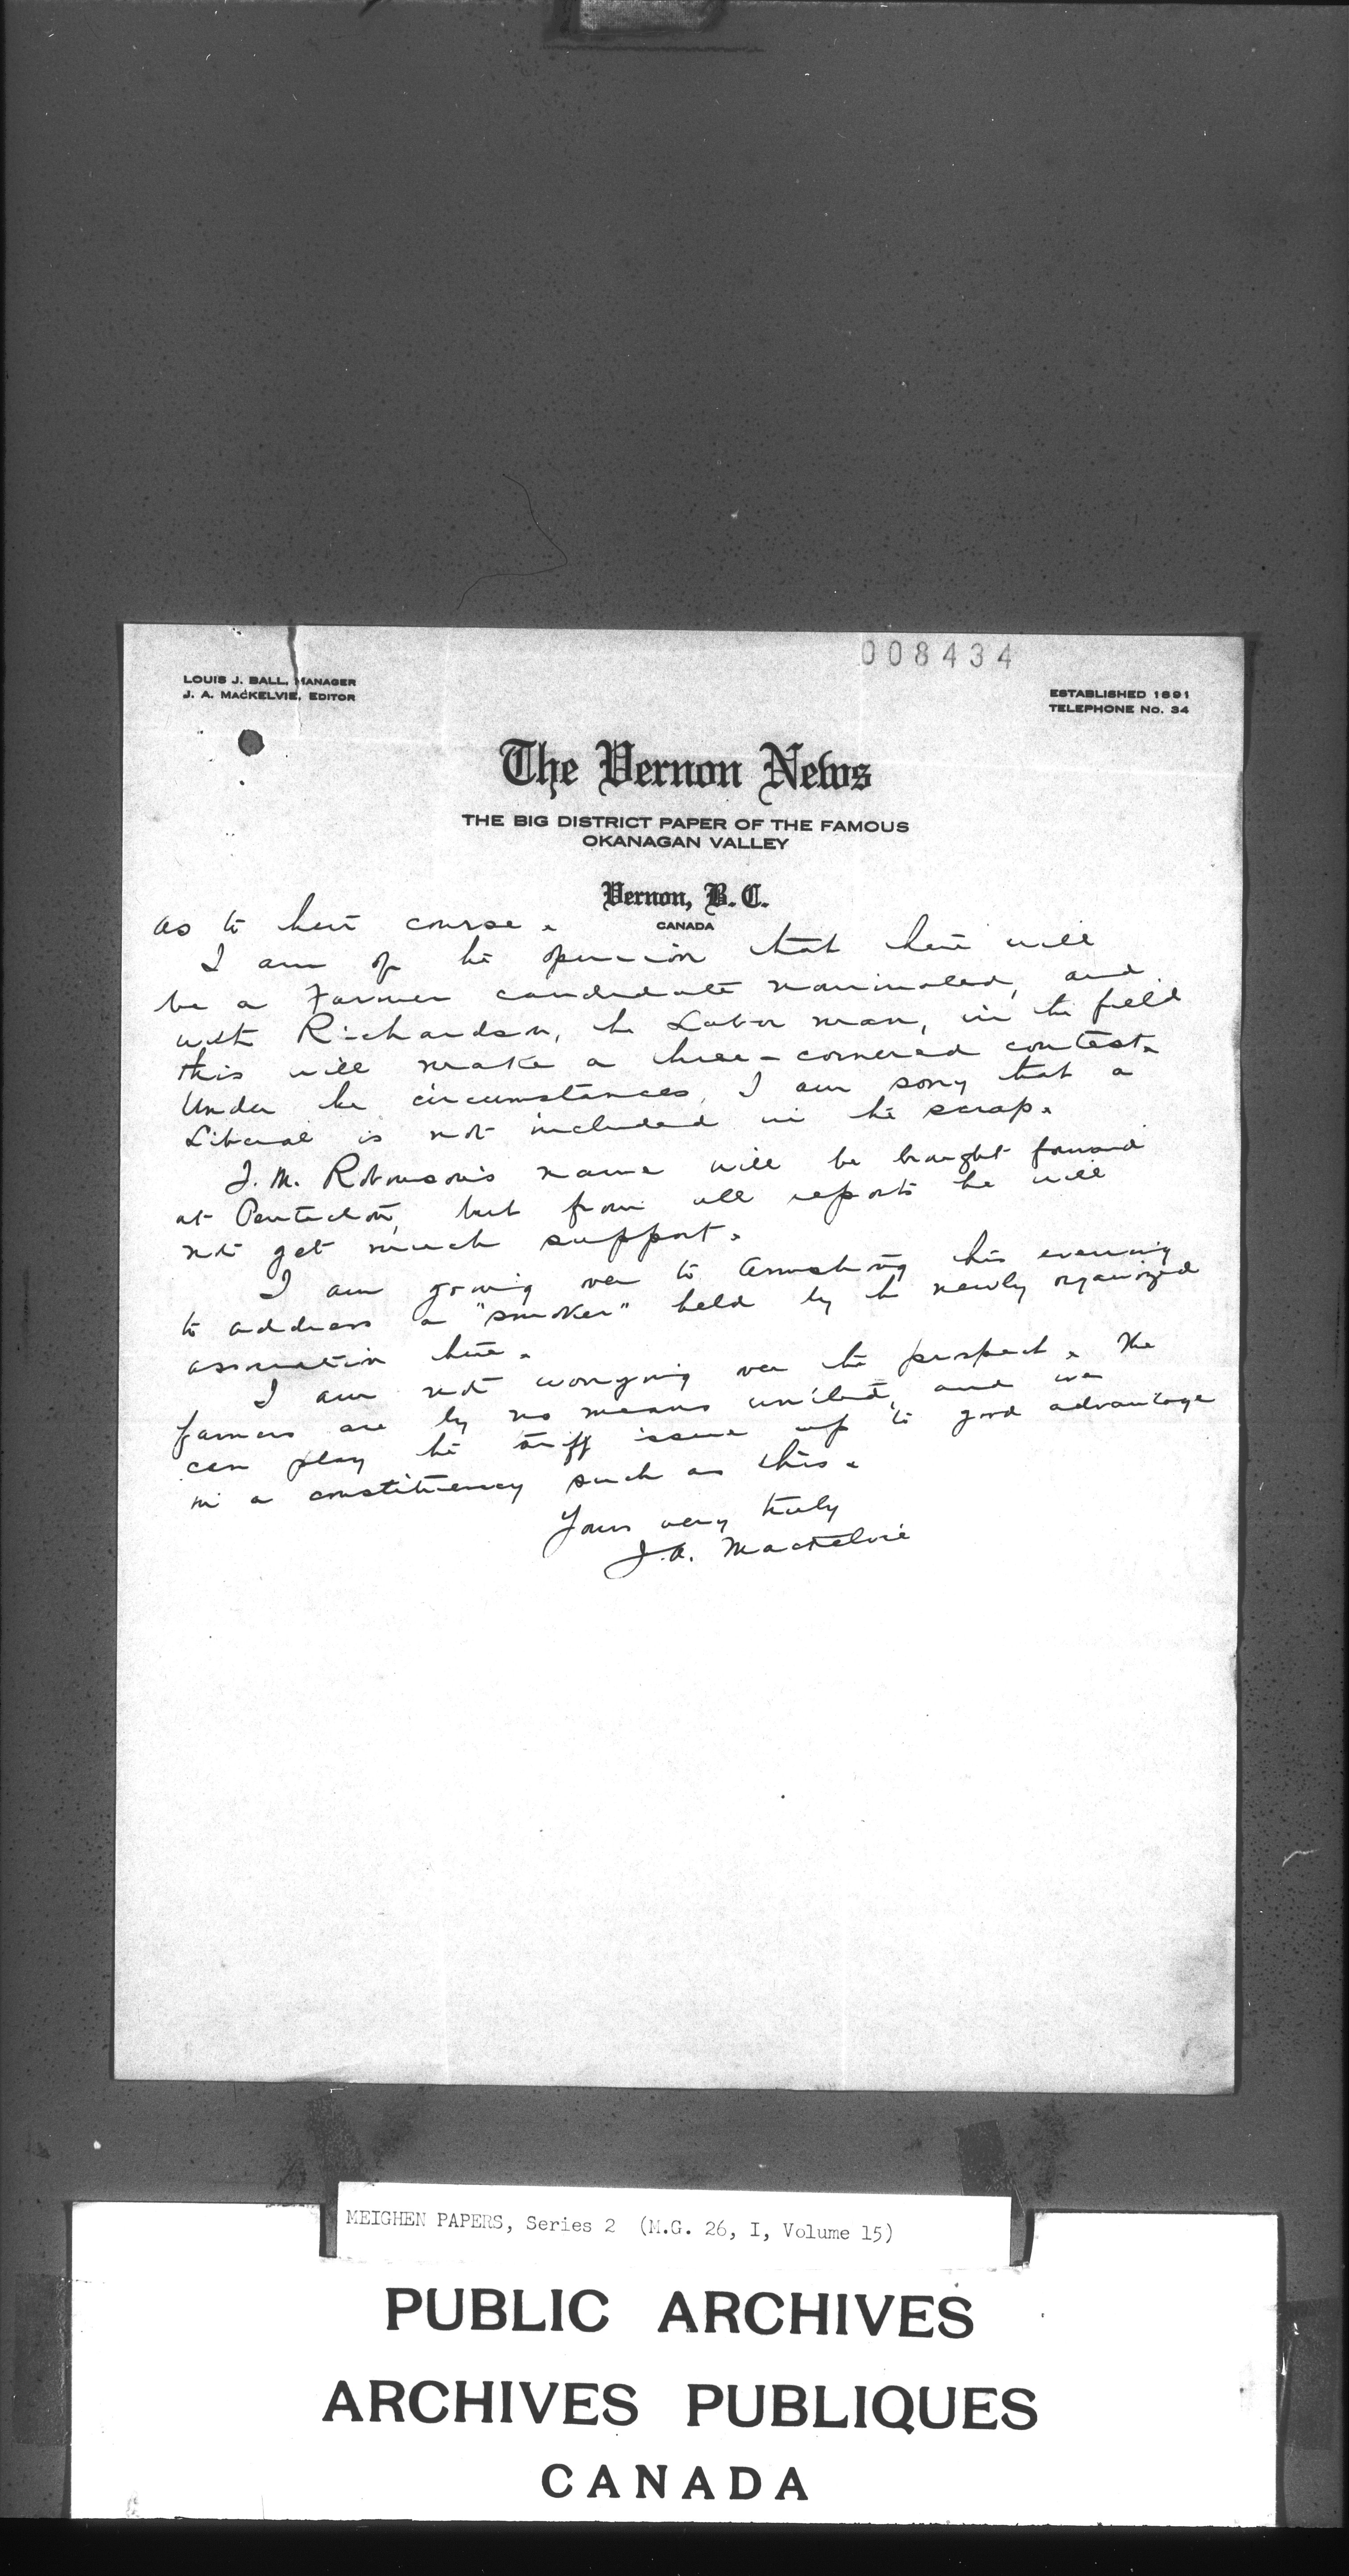 008434
LOUIS J. BALL, MANAGER
J. A. MACKELVIE, EDITOR
ESTABLISHED 1891
TELEPHONE No. 34
The Vernon News
THE BIG DISTRICT PAPER OF THE FAMOUS
OKANAGAN VALLEY
Vernon, B. C.
CANADA
as to their course.
I am of the opinion that there will
be a Farmer candidate nominated, and
with Richardson, the Labor man, in the field
this will make a three-cornered contest.
Under the circumstances, I am sorry that a
Liberal is not included in the scrap.
J. M. Robinson's name will be brought forward
at Penticton, but from all reports he will
not get much support.
I am going over to Armstrong this evening
to address a "smoker" held by the newly organized
association there.
I am not worrying over the prospect. The
farmers are by no means united, and we
can play the tariff issue up to good advantage
in a constituency such as this.
Yours very truly
J.A. MacKelvie
MEIGHEN PAPERS, Series 2 (M.G. 26, I, Volume 15)
PUBLIC ARCHIVES
ARCHIVES PUBLIQUES
CANADA